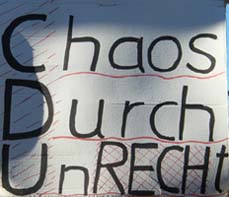 Chaos
Durch
UnRECHt